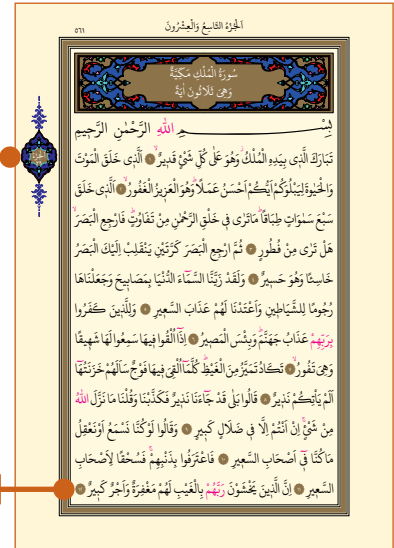 اَلْجُزْءُ التَّاسِعُ وَالْعِشْرُونَ
٥٦١
سُورَةُ الْمُلْكِ مَكِّيَّةٌ
وَهِىَ ثَلَاثُونَ اٰيَةً
بِسْمِ اللّٰهِ الرَّحْمٰنِ الرَّحٖيمِ
تَبَارَكَ الَّذٖى بِيَدِهِ الْمُلْكُ وَهُوَ عَلٰى كُلِّ شَىْءٍ قَدٖيرٌ ۝١ اَلَّذٖى خَلَقَ الْمَوْتَ
وَالْحَيٰوةَ لِيَبْلُوَكُمْ اَيُّكُمْ اَحْسَنُ عَمَلًا وَهُوَ الْعَزٖيزُ الْغَفُورُ ۝٢ اَلَّذٖى خَلَقَ
سَبْعَ سَمٰوَاتٍ طِبَاقًا مَا تَرٰى فٖى خَلْقِ الرَّحْمٰنِ مِنْ تَفَاوُتٍ فَارْجِعِ الْبَصَرَ
هَلْ تَرٰى مِنْ فُطُورٍ ۝٣ ثُمَّ ارْجِعِ الْبَصَرَ كَرَّتَيْنِ يَنْقَلِبْ اِلَيْكَ الْبَصَرُ
خَاسِئًا وَهُوَ حَسٖيرٌ ۝٤ وَلَقَدْ زَيَّنَّا السَّمَاءَ الدُّنْيَا بِمَصَابٖيحَ وَجَعَلْنَاهَا
رُجُومًا لِلشَّيَاطٖينِ وَاَعْتَدْنَا لَهُمْ عَذَابَ السَّعٖيرِ ۝٥ وَلِلَّذٖينَ كَفَرُوا
بِرَبِّهِمْ عَذَابُ جَهَنَّمَ وَبِئْسَ الْمَصٖيرُ ۝٦ اِذَا اُلْقُوا فٖيهَا سَمِعُوا لَهَا شَهٖيقًا
وَهِىَ تَفُورُ ۝٧ تَكَادُ تَمَيَّزُ مِنَ الْغَيْظِ كُلَّمَا اُلْقِىَ فٖيهَا فَوْجٌ سَاَلَهُمْ خَزَنَتُهَا
اَلَمْ يَاْتِكُمْ نَذٖيرٌ ۝٨ قَالُوا بَلٰى قَدْ جَاءَنَا نَذٖيرٌ فَكَذَّبْنَا وَقُلْنَا مَا نَزَّلَ اللّٰهُ
مِنْ شَىْءٍ اِنْ اَنْتُمْ اِلَّا فٖى ضَلَالٍ كَبٖيرٍ ۝٩ وَقَالُوا لَوْ كُنَّا نَسْمَعُ اَوْ نَعْقِلُ
مَا كُنَّا فٖى اَصْحَابِ السَّعٖيرِ ۝١٠ فَاعْتَرَفُوا بِذَنْبِهِمْ فَسُحْقًا لِاَصْحَابِ
السَّعٖيرِ ۝١١ اِنَّ الَّذٖينَ يَخْشَوْنَ رَبَّهُمْ بِالْغَيْبِ لَهُمْ مَغْفِرَةٌ وَاَجْرٌ كَبٖيرٌ ۝١٢